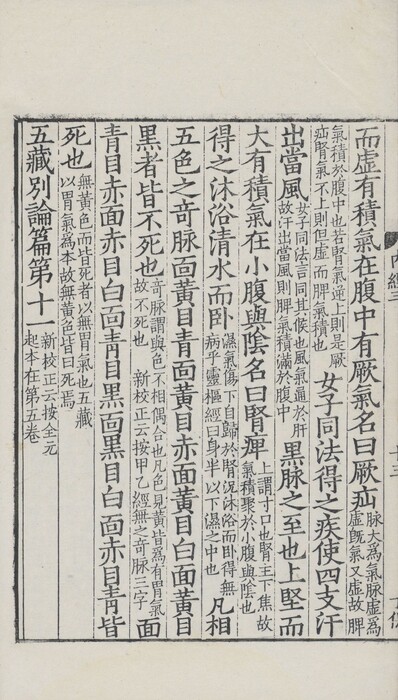 而虛有積氣在腹中有厥氣名曰厥疝脉大爲氣脉虛爲虛旣氣又虛故脾
氣積於腹中也若腎氣逆上則是厥疝腎氣不上則但虛而脾氣積也女子同法得之疾使四支汗
出當風女子同法言同其候也風氣通於肝故汗出當風則脾氣積滿於腹中黑脉之至也上堅而
大有積氣在小腹與陰名曰腎痺上謂寸口也腎主下焦故氣積聚於小腹與陰也
得之沐浴清水而卧濕氣傷下自歸於腎況沐浴而卧得無病乎靈樞經曰身半以下濕之中也凡相
五色之奇脉面黃目青面黃目赤面黃目白面黃目
黑者皆不死也奇脉謂與色不相偶合也凡色見黃皆爲有胃氣故不死也新校正云按甲乙經無之奇脉三字面
青目赤面赤目白面青目黑面黑目白面赤目青皆
死也無黃色而皆死者以無胃氣也五藏以胃氣爲本故無黃色皆曰死焉
五藏別論篇第十一新校正云按全元起本在第五卷
內經三